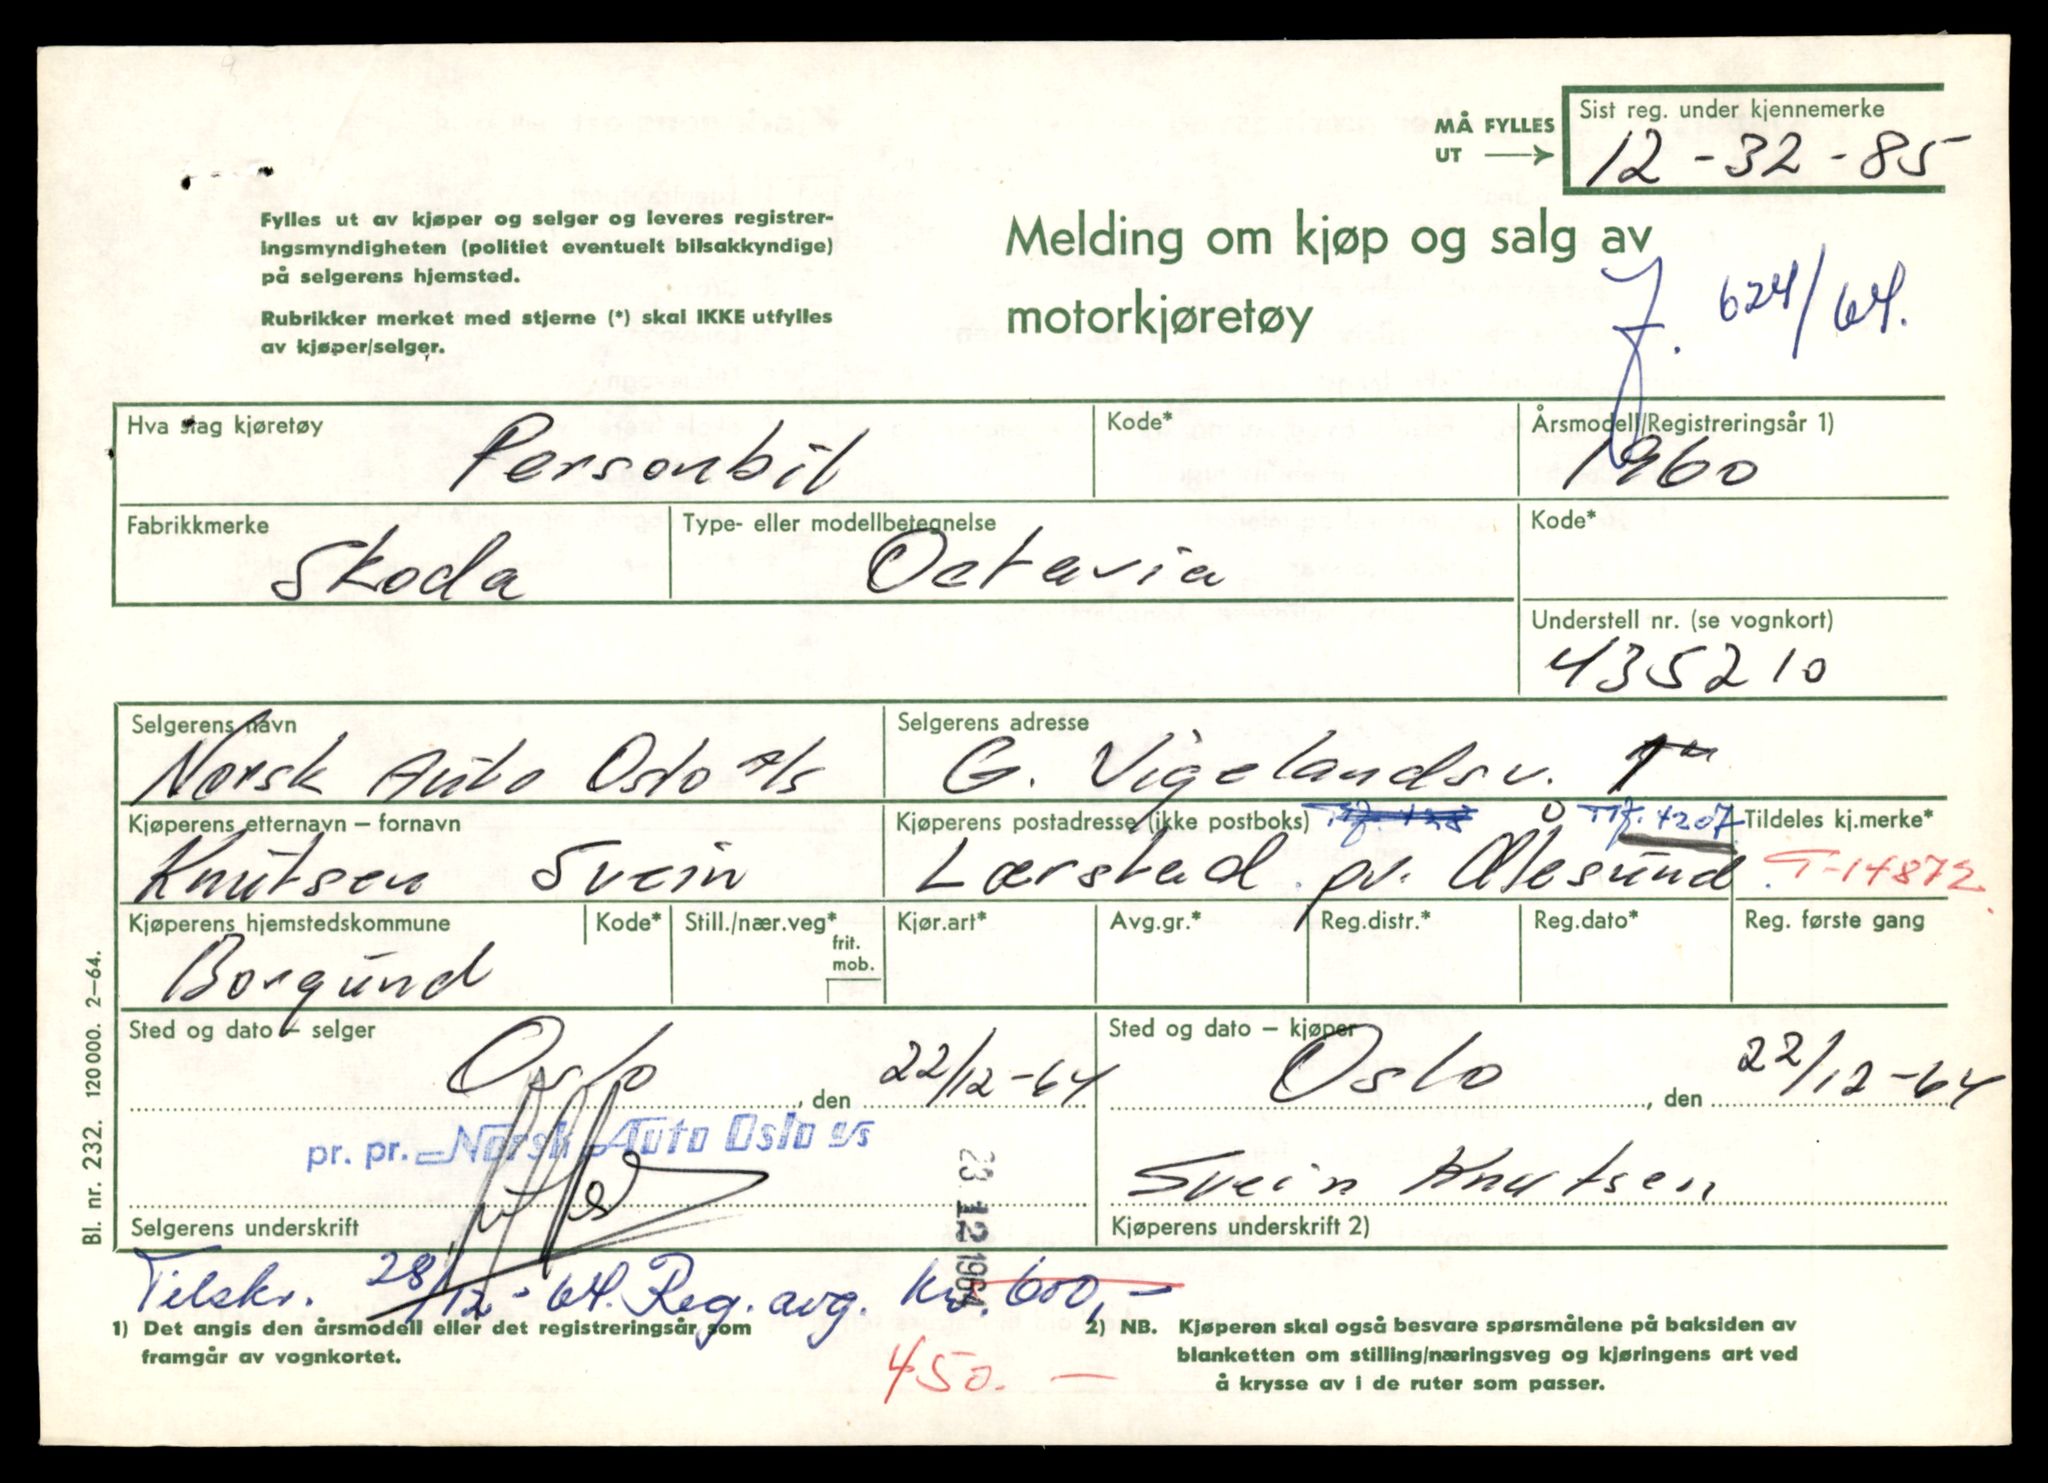 MÅ FYLLES UT
Sist reg. under kjennemerke
12-32-85
Fylles ut av kjøper og selger og leveres registrer-
ingsmyndigheten (politiet eventuelt bilsakkyndige)
på selgerens hjemsted.
Rubrikker merket med stjerne (*) skal IKKE utfylles
av kjøper/selger.
Melding om kjøp og salg av
motorkjøretøy
J. 624/64.
Hva slag kjøretøy
Personbil
Kode*
Årsmodell/Registreringsår 1)
1960
Fabrikkmerke
Skoda
Type- eller modellbetegnelse
Octavia
Kode*
Understell nr. (se vognkort)
435210
Selgerens navn
Norsk Auto Oslo a/s
Selgerens adresse
G. Vigelandsv.
Kjøperens etternavn – fornavn
Knutsen Svein
Kjøperens postadresse (ikke postboks)
Tlf. 4207
Lærstad pr. Ålesund
Tildeles kj.merke*
T-14872
Kjøperens hjemstedskommune
Borgund
Kode*
Still./nær.veg*
frit. mob.
Kjør.art*
Avg.gr.*
Reg.distr.*
Reg.dato*
Reg. første gang
Sted og dato – selger
Oslo, den 22/12-64
Sted og dato – kjøper
Oslo, den 22/12-64
pr. pr. Norsk Auto Oslo a/s
23.12.1964
Svein Knutsen
Selgerens underskrift
Kjøperens underskrift 2)
Tilskr. 28/12-64. Reg. avg. kr. 600,-
450.—
1) Det angis den årsmodell eller det registreringsår som
framgår av vognkortet.
2) NB. Kjøperen skal også besvare spørsmålene på baksiden av
blanketten om stilling/næringsveg og kjøringens art ved
å krysse av i de ruter som passer.
Bl. nr. 232. 120 000. 2–64.